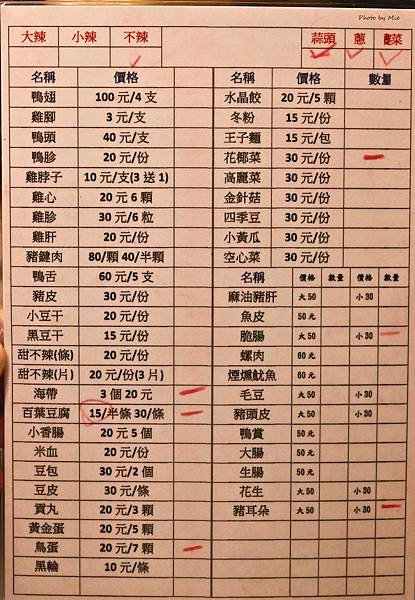 Photo by Mie
大辣 小辣 不辣 蒜頭 蔥 酸菜
名稱 價格 名稱 價格 數量
鴨翅 100 元/4 支 水晶餃 20 元/5 顆
雞腳 3 元/支 冬粉 15 元/份
鴨頭 40 元/支 王子麵 15 元/包
鴨胗 20 元/份 花椰菜 30 元/份
雞脖子 10 元/支(3 送 1) 高麗菜 30 元/份
雞心 20 元 6 顆 金針菇 30 元/份
雞胗 30 元/6 粒 四季豆 30 元/份
雞肝 20 元/份 小黃瓜 30 元/份
豬鍵肉 80/顆 40/半顆 空心菜 30 元/份
鴨舌 60 元/5 支 名稱 價格 數量 價格 數量
豬皮 30 元/份 麻油豬肝 大 50 小 30
小豆干 20 元/份 魚皮 50 元
黑豆干 15 元/份 脆腸 大 50 小 30
甜不辣(條) 20 元/份 螺肉 60 元
甜不辣(片) 20 元/份(3 片) 煙燻魷魚 60 元
海帶 3 個 20 元 毛豆 大 50 小 30
百葉豆腐 15/半條 30/條 豬頭皮 大 50 小 30
小香腸 20 元 5 個 鴨賞 50 元
米血 20 元/份 大腸 50 元
豆包 30 元/2 個 生腸 50 元
豆皮 30 元/條 花生 大 50 小 30
貢丸 20 元/3 顆 豬耳朵 大 50 小 30
黃金蛋 20 元/5 顆
鳥蛋 20 元/7 顆
黑輪 10 元/條